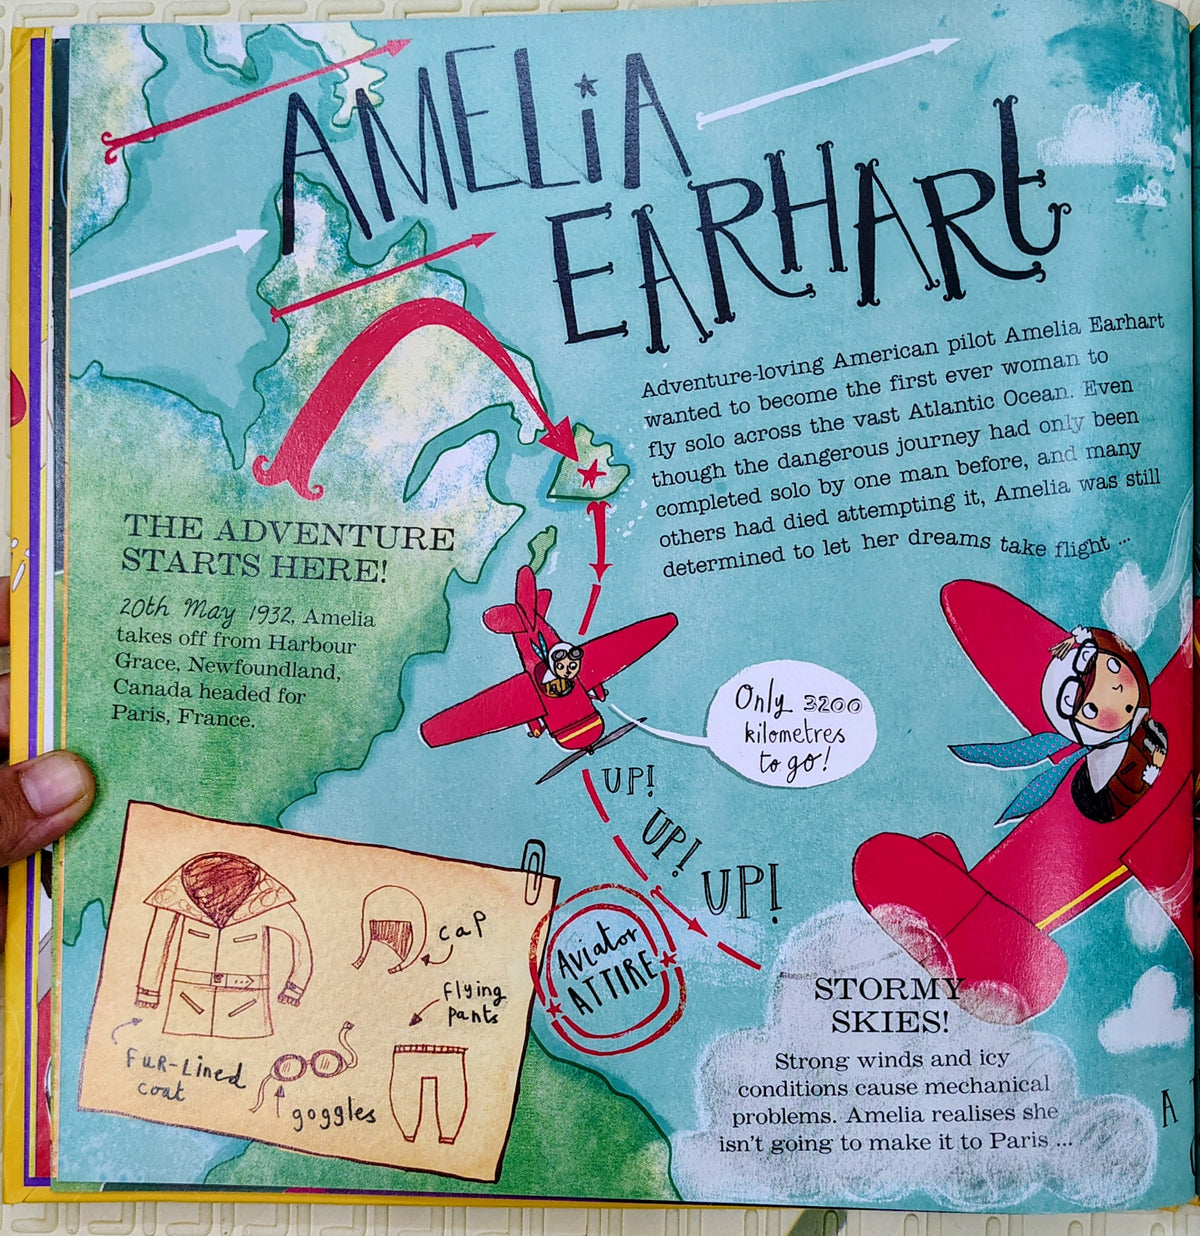 AMELiA
EARHART
Adventure-loving American pilot Amelia Earhart
wanted to become the first ever woman to
fly solo across the vast Atlantic Ocean. Even
though the dangerous journey had only been
completed solo by one man before, and many
others had died attempting it, Amelia was still
determined to let her dreams take flight ...
THE ADVENTURE
STARTS HERE!
20th May 1932, Amelia
takes off from Harbour
Grace, Newfoundland,
Canada headed for
Paris, France.
Only 3200
kilometres
to go!
UP!
UP!
UP!
Aviator
ATTIRE
cap
flying
pants
FUR-Lined
coat
goggles
STORMY
SKIES!
Strong winds and icy
conditions cause mechanical
problems. Amelia realises she
isn't going to make it to Paris ...
A